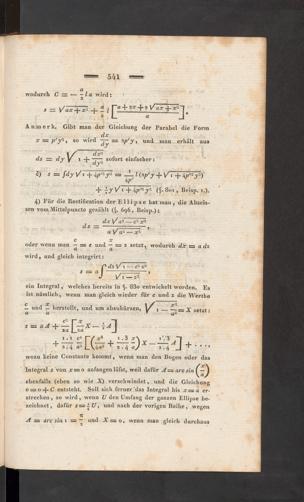 541
wodurch C = — a/2 l a wird:
s = √(ax + x²) + a/2 l [(a + 2x + 2√(ax + x²))/a].
Anmerk. Gibt man der Gleichung der Parabel die Form
x = p'y², so wird dx/dy = 2p'y, und man erhält aus
ds = dy √(1 + dx²/dy²) sofort einfacher:
4) Für die Rectification der Ellipse hat man, die Abscis-
sen vom Mittelpuncte gezählt (§. 696, Beisp.):
oder wenn man = e und x/a = z setzt, wodurch dx = a dz
wird, und gleich integrirt:
s = a ∫ dz √(1 — e² z²)/√(1 — z²),
ein Integral, welches bereits in §. 830 entwickelt worden. Es
ist nämlich, wenn man gleich wieder für e und z die Werthe
und x/a herstellt, und um abzukürzen, √(1 — x²/a²) = X setzt:
wozu keine Constante kommt, wenn man den Bogen oder das
Integral s von x = 0 anfangen läßt, weil dafür A = arc sin (x/a)
ebenfalls (eben so wie X) verschwindet, und die Gleichung
0 = 0 + C entsteht. Soll sich ferner das Integral bis x = a er-
strecken, so wird, wenn U den Umfang der ganzen Ellipse be-
zeichnet, dafür s = ¼ U, und nach der vorigen Reihe, wegen
A = arc sin 1 = π/2 und X = 0, wenn man gleich durchaus